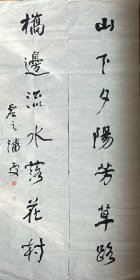 山下夕陽芳草路
橋邊流水落花村